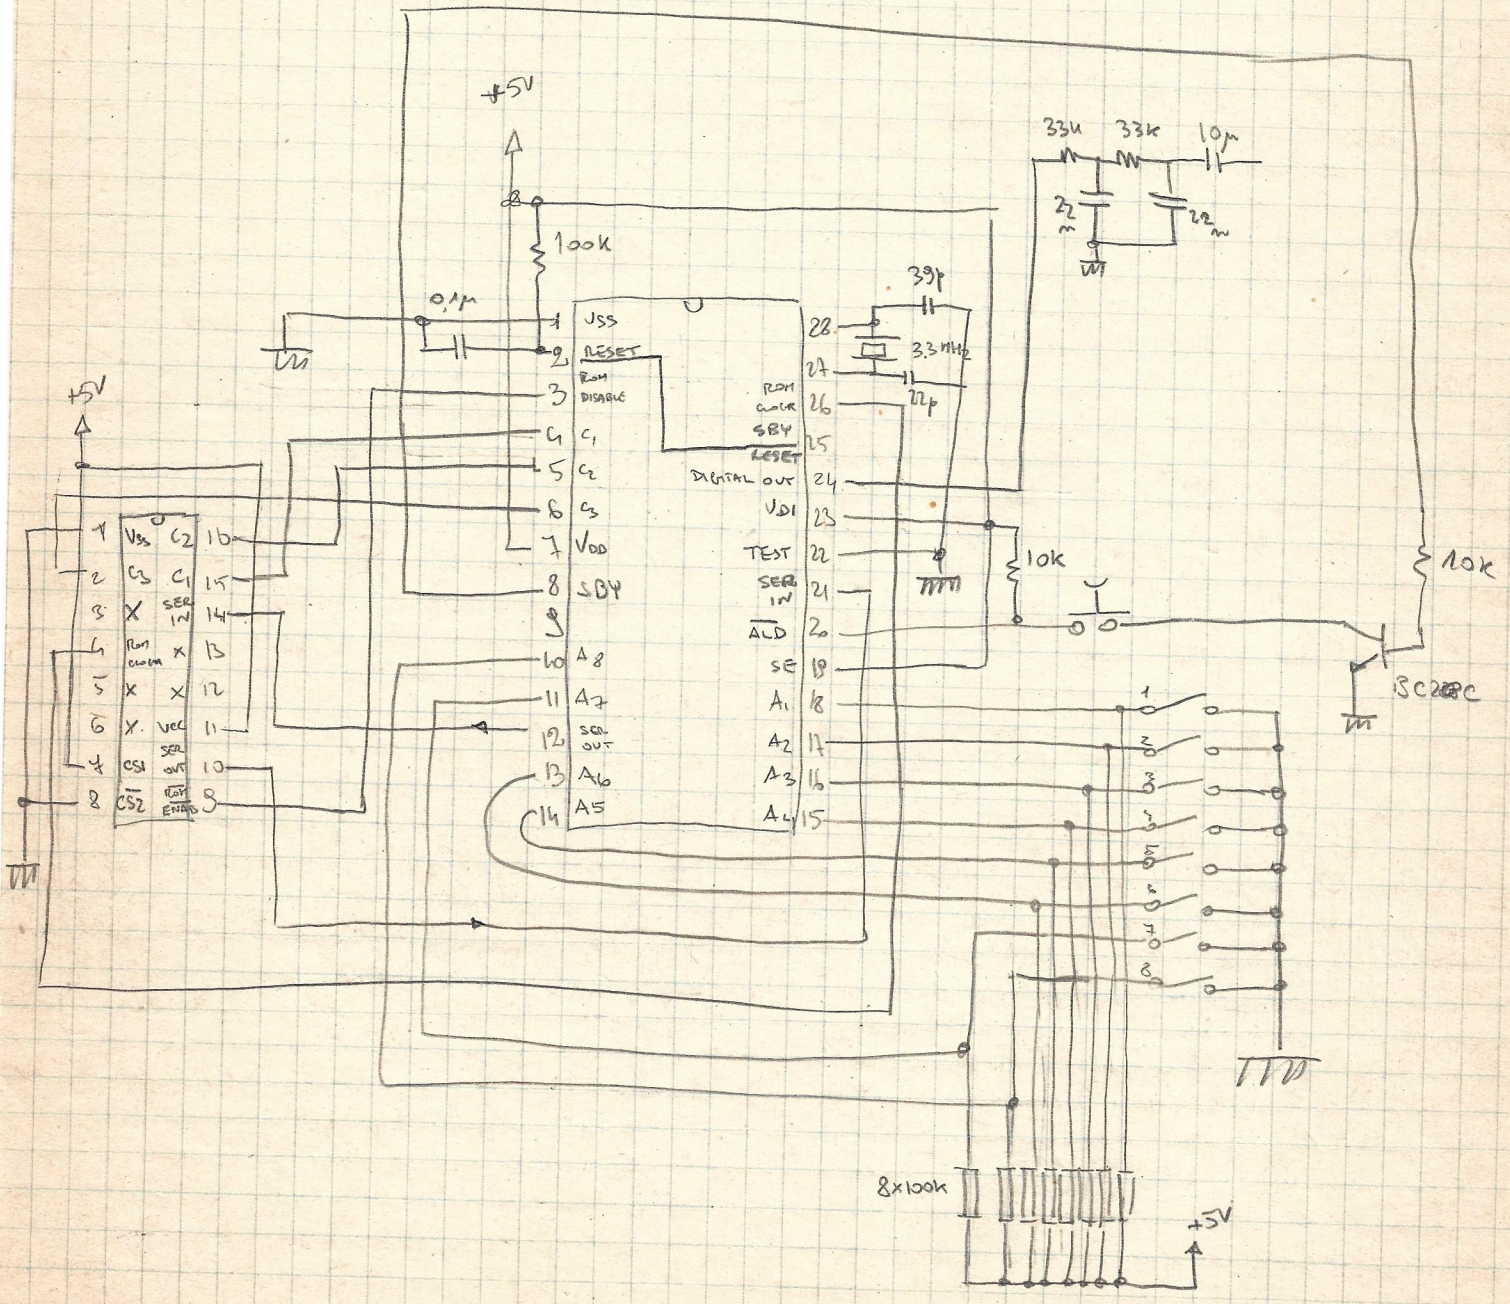 +5V
33k 33k 10µ
22n 22n
100k
0,1µ
39p
3.3 MHz
22p
+5V
1 VSS
2 RESET
3 ROM DISABLE
4 C1
5 C2
6 C3
7 VDD
8 SBY
9
10 A8
11 A7
12 SER OUT
13 A6
14 A5
28
27
26 ROM CLOCK
25 SBY RESET
24 DIGITAL OUT
23 VDI
22 TEST
21 SER IN
20 ALD
19 SE
18 A1
17 A2
16 A3
15 A4
1 VSS C2 16
2 C3 C1 15
3 X SER IN 14
4 ROM CLOCK X 13
5 X X 12
6 X VCC 11
7 CS1 SER OUT 10
8 CS2 ROM ENAB 9
10k
10k
1
2
3
5
6
7
8
8x100k
+5V